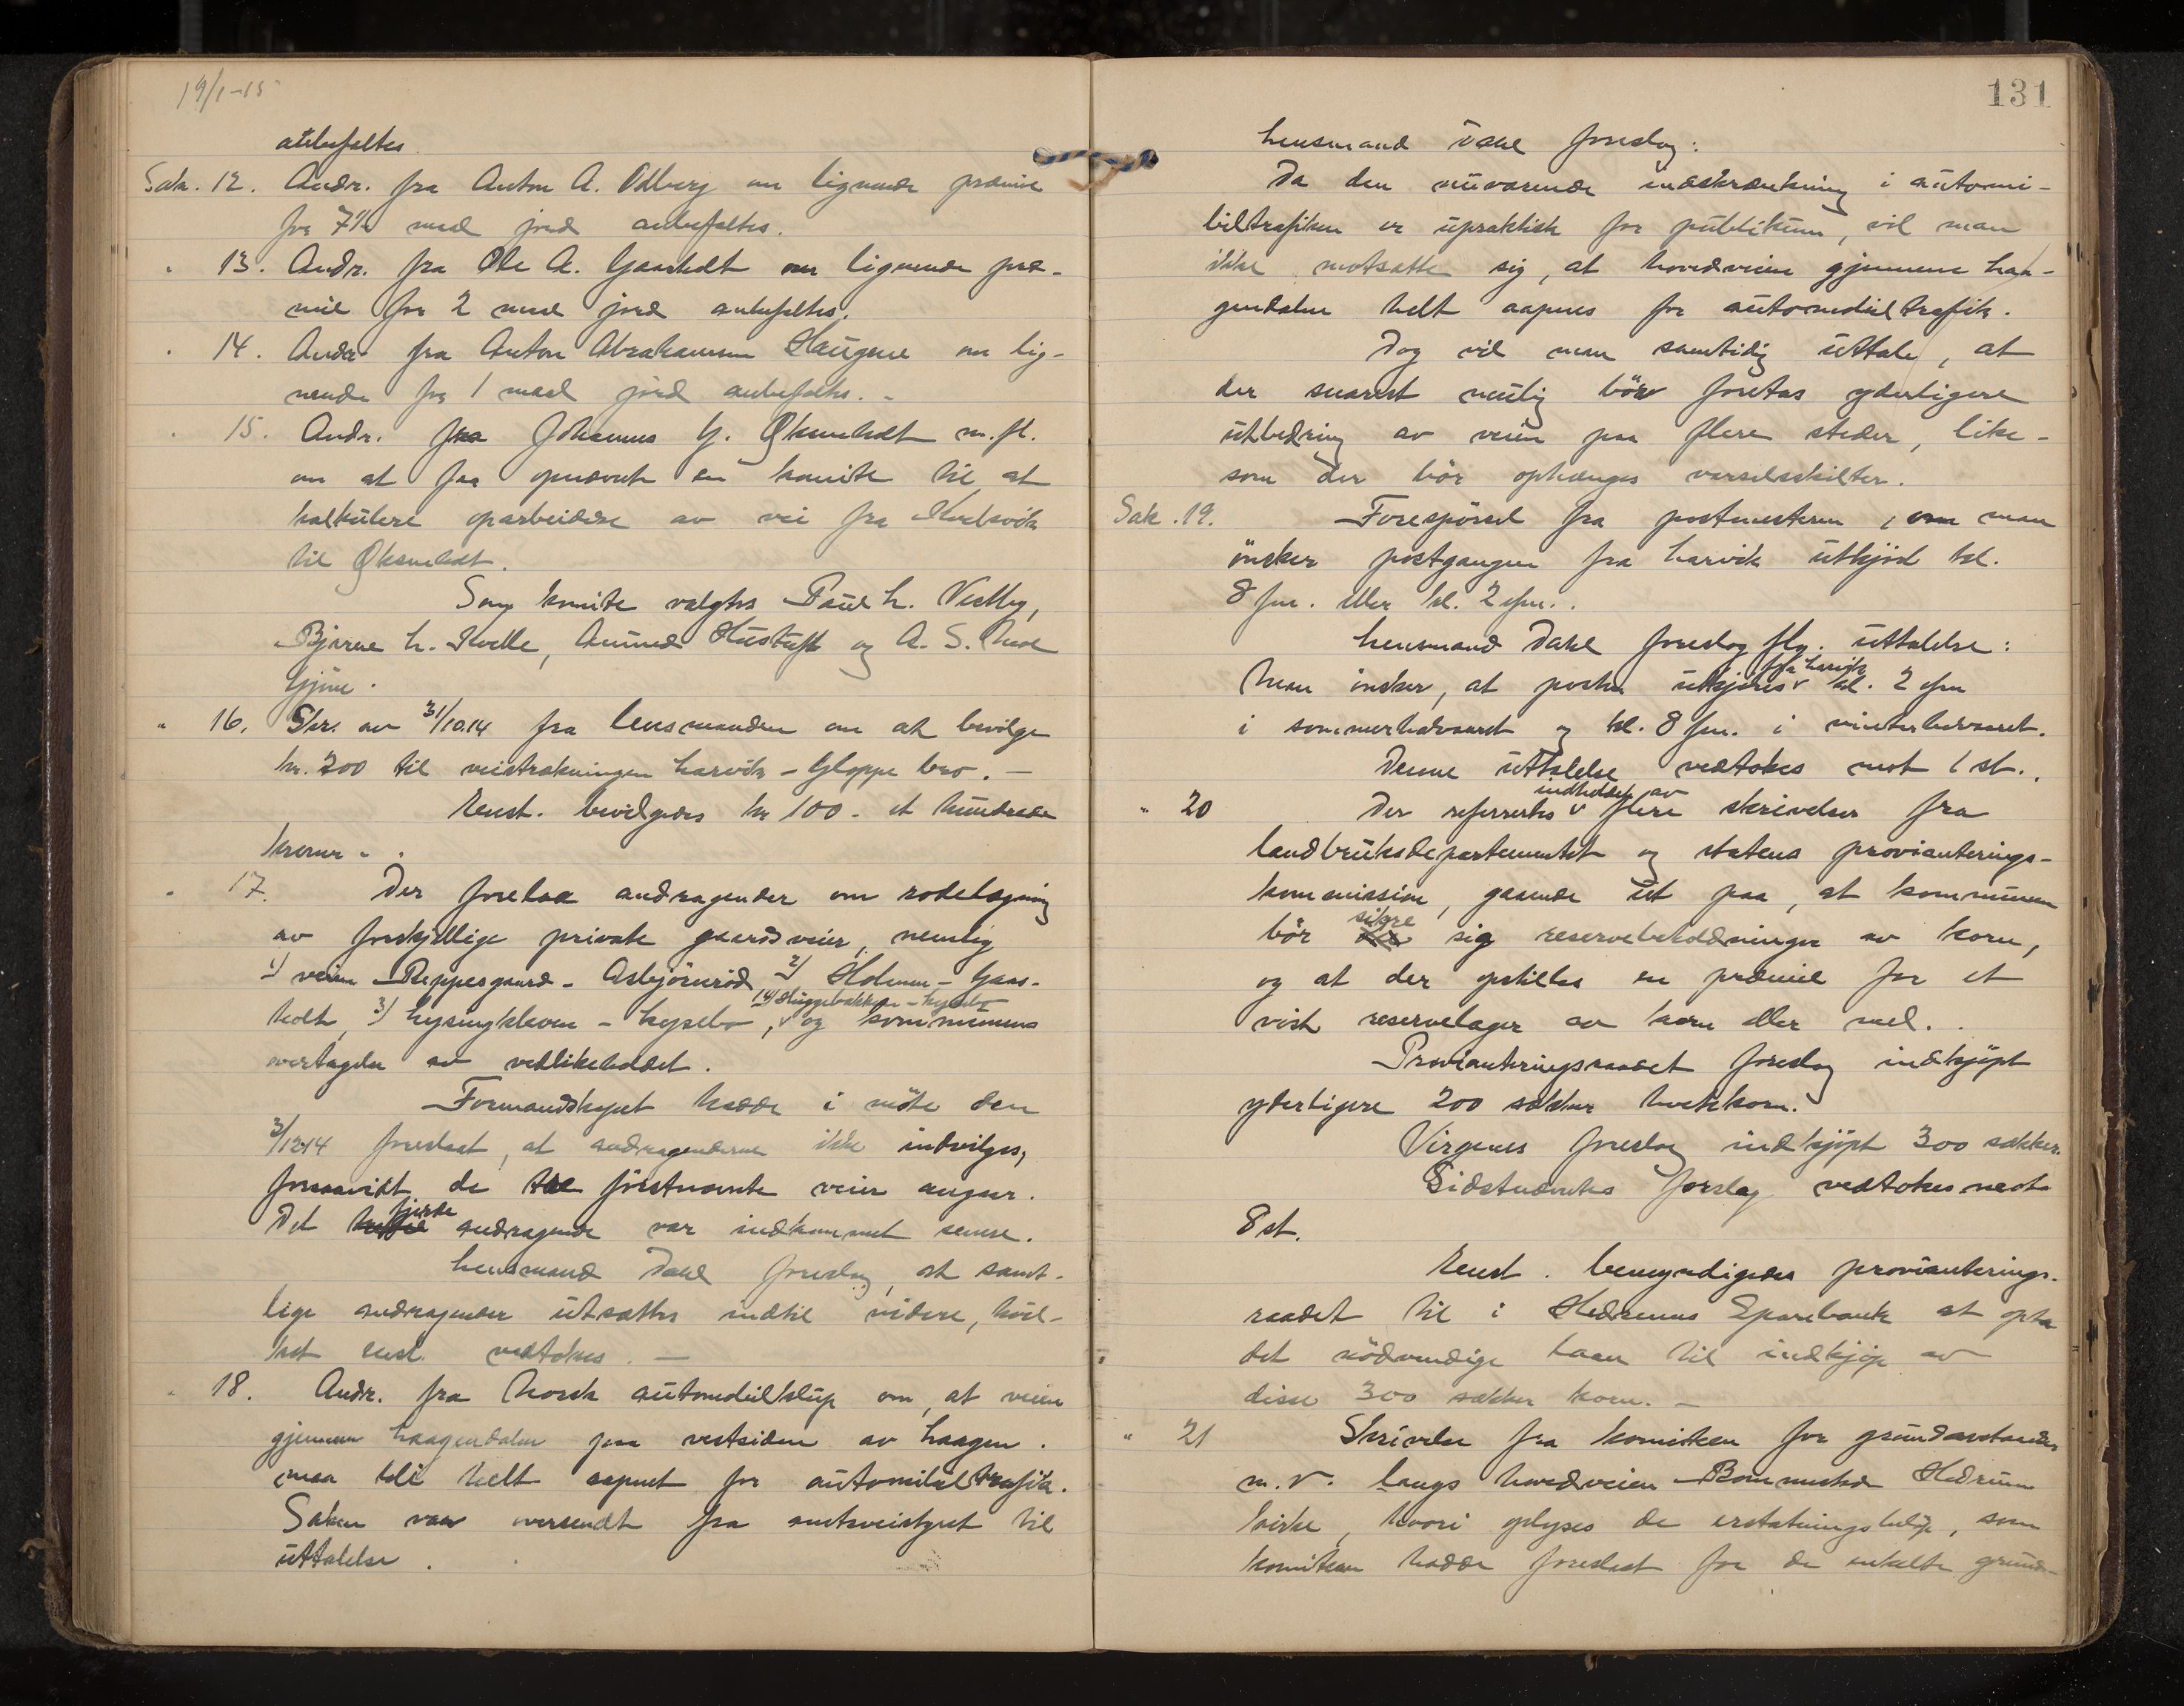 19/1-15
anbefaltes.
Sak. 12. Andr. fra Anton A. Odberg om lignende præmie
for 7½ maal jord anbefaltes.
" 13. Andr. fra Ole A. Gaasholt om lignende præ-
mie for 2 maal jord anbefaltes.
" 14. Andr. fra Anton Abrahamsen Haugene om lig-
nende for 1 maal jord anbefaltes. -
" 15. Andr. fra Johannes G. Øksenholt m. fl.
om at faa opnævnt en komite til at
kalkulere oparbeidelse av vei fra
til Øksenholt.
Som komite valgtes Paul L. Vestby,
Bjarne L. Kvelle, Amund og A. S.
Gjone.
" 16. Skr. av 31/10.14 fra lensmanden om at bevilge
kr. 200 til veistrækningen Larvik - Gloppe bro. -
Enst. bevilgedes kr 100 - et hundrede
kroner - .
" 17. Der forelaa andragender om rodelægning
av forskjellige private gaardsveier, nemlig
1) veien Reppesgaard - Asbjørnrød 2) Holmen - Gaas-
4) Huggebakken - Lysebo
holt, 3) Lysingkleven - Lysebo, v og kommunens
overtagelse av vedlikeholdet.
Formandskapet hadde i møte den
3/12-14 foreslaat, at andragenderne ikke indvilges,
forsaavidt de tre førstnævnte veier angaar.
fjerde
Det andragende var indkommet senere.
Lensmand Dahl foreslog, at samt-
lige andragender utsættes indtil videre, hvil-
ket enst. vedtokes. -
" 18. Andr. fra Norsk automobilklup om, at veien
gjennem Laagendalen paa vestsiden av Laagen
maa bli helt aapnet for automobiltrafik.
Saken var oversendt fra amtsveistyret til
uttalelse.
131
Lensmand Dahl foreslog:
Da den nuværende indskrænkning i automo-
biltrafiken er upraktisk for publikum, vil man
ikke motsætte sig, at hovedveien gjennem Laa-
gendalen helt aapnes for automobiltrafik.
Dog vil man samtidig uttale, at
der snarest mulig bør foretas yderligere
utbedring av veien paa flere steder, like-
som der bør ophænges varselsskilter.
Sak. 19. Forespørsel fra postmesteren, om man
ønsker postgangen fra Larvik utkjørt kl.
8 fm. eller kl. 2 efm..
Lensmand Dahl foreslog flg. uttalelse:
fra Larvik
Man ønsker, at posten utkjøres v kl. 2 efm
i sommerhalvaaret og kl. 8 fm. i vinterhalvaaret.
Denne uttalelse vedtokes mot 1 st..
indholdet av
" 20 Der refertes v flere skrivelser fra
landbruksdepartementet og statens provianterings-
kommission, gaaende ut paa, at kommunen
sikre
bør sig reservebeholdninger av korn,
og at der opstilles en præmie for et
vist reservelager av korn eller mel..
Provianteringsraadet foreslog indkjøpt
yderligere 200 sækker hvetekorn.
Virgenes foreslog indkjøpt 300 sækker.
Sidstnævntes forslag vedtokes mot
8 st.
Enst. bemyndigedes provianterings-
raadet til i Hedrums Sparebank at opta
det nødvendige laan til indkjøp av
disse 300 sækker korn. -
" 21 Skrivelse fra komiteen for grundavstaaelse
m. v. langs hovedveien Bommestad Hedrum
kirke, hvori oplyses de erstatningsbeløp, som
komiteen hadde foreslaat for de enkelte grund-